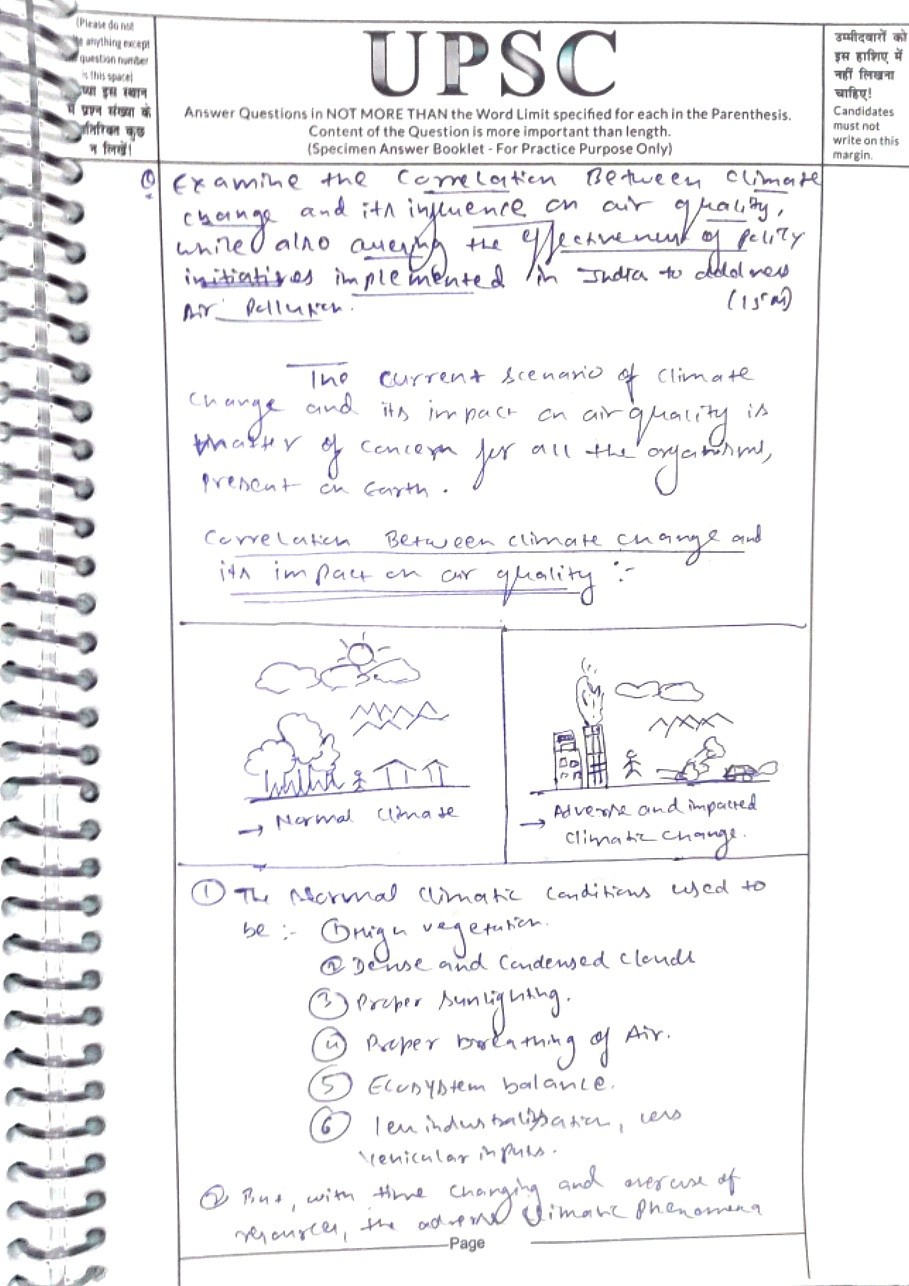 (Please do not
anything except
question number
this space)
इस स्थान
में प्रश्न संख्या के
कुछ
न लिखें!
UPSC
Answer Questions in NOT MORE THAN the Word Limit specified for each in the Parenthesis.
Content of the Question is more important than length.
(Specimen Answer Booklet - For Practice Purpose Only)
उम्मीदवारों को
इस हाशिए में
नहीं लिखना
चाहिए!
Candidates
must not
write on this
margin.
Q Examine the Correlation Between climate
change and its influence on air quality,
while also the effectiveness of policy
initiatives implemented in India to address
Air Pollution. (15M)
The current scenario of climate
change and its impact on air quality is
matter of concern for all the organisms,
present on Earth.
Correlation Between climate change and
its impact on air quality :-
→ Normal Climate
→ Adverse and impacted
climatic change.
① The Normal climatic conditions used to
be :- ① vegetation.
② Dense and Condensed clouds
③ Proper sunlighting.
④ Proper breathing of Air.
⑤ Ecosystem balance.
⑥ less industrialisation, less
vehicular inputs.
② But, with time changing and overuse of
resources, the adverse climatic phenomena
Page